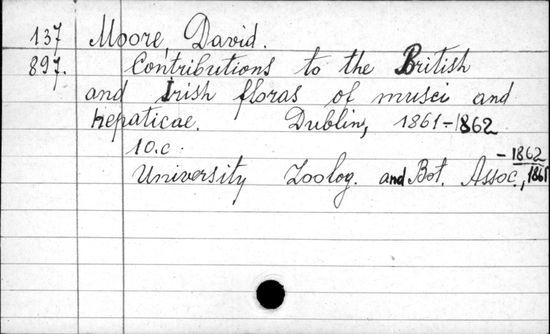 137 Moore, David.
897. Contributions to the British
and Irish floras of musci and
hepaticae. Dublin, 1861-1862
10.c.
University Zoolog. and Bot. Assoc., 1861
-1862